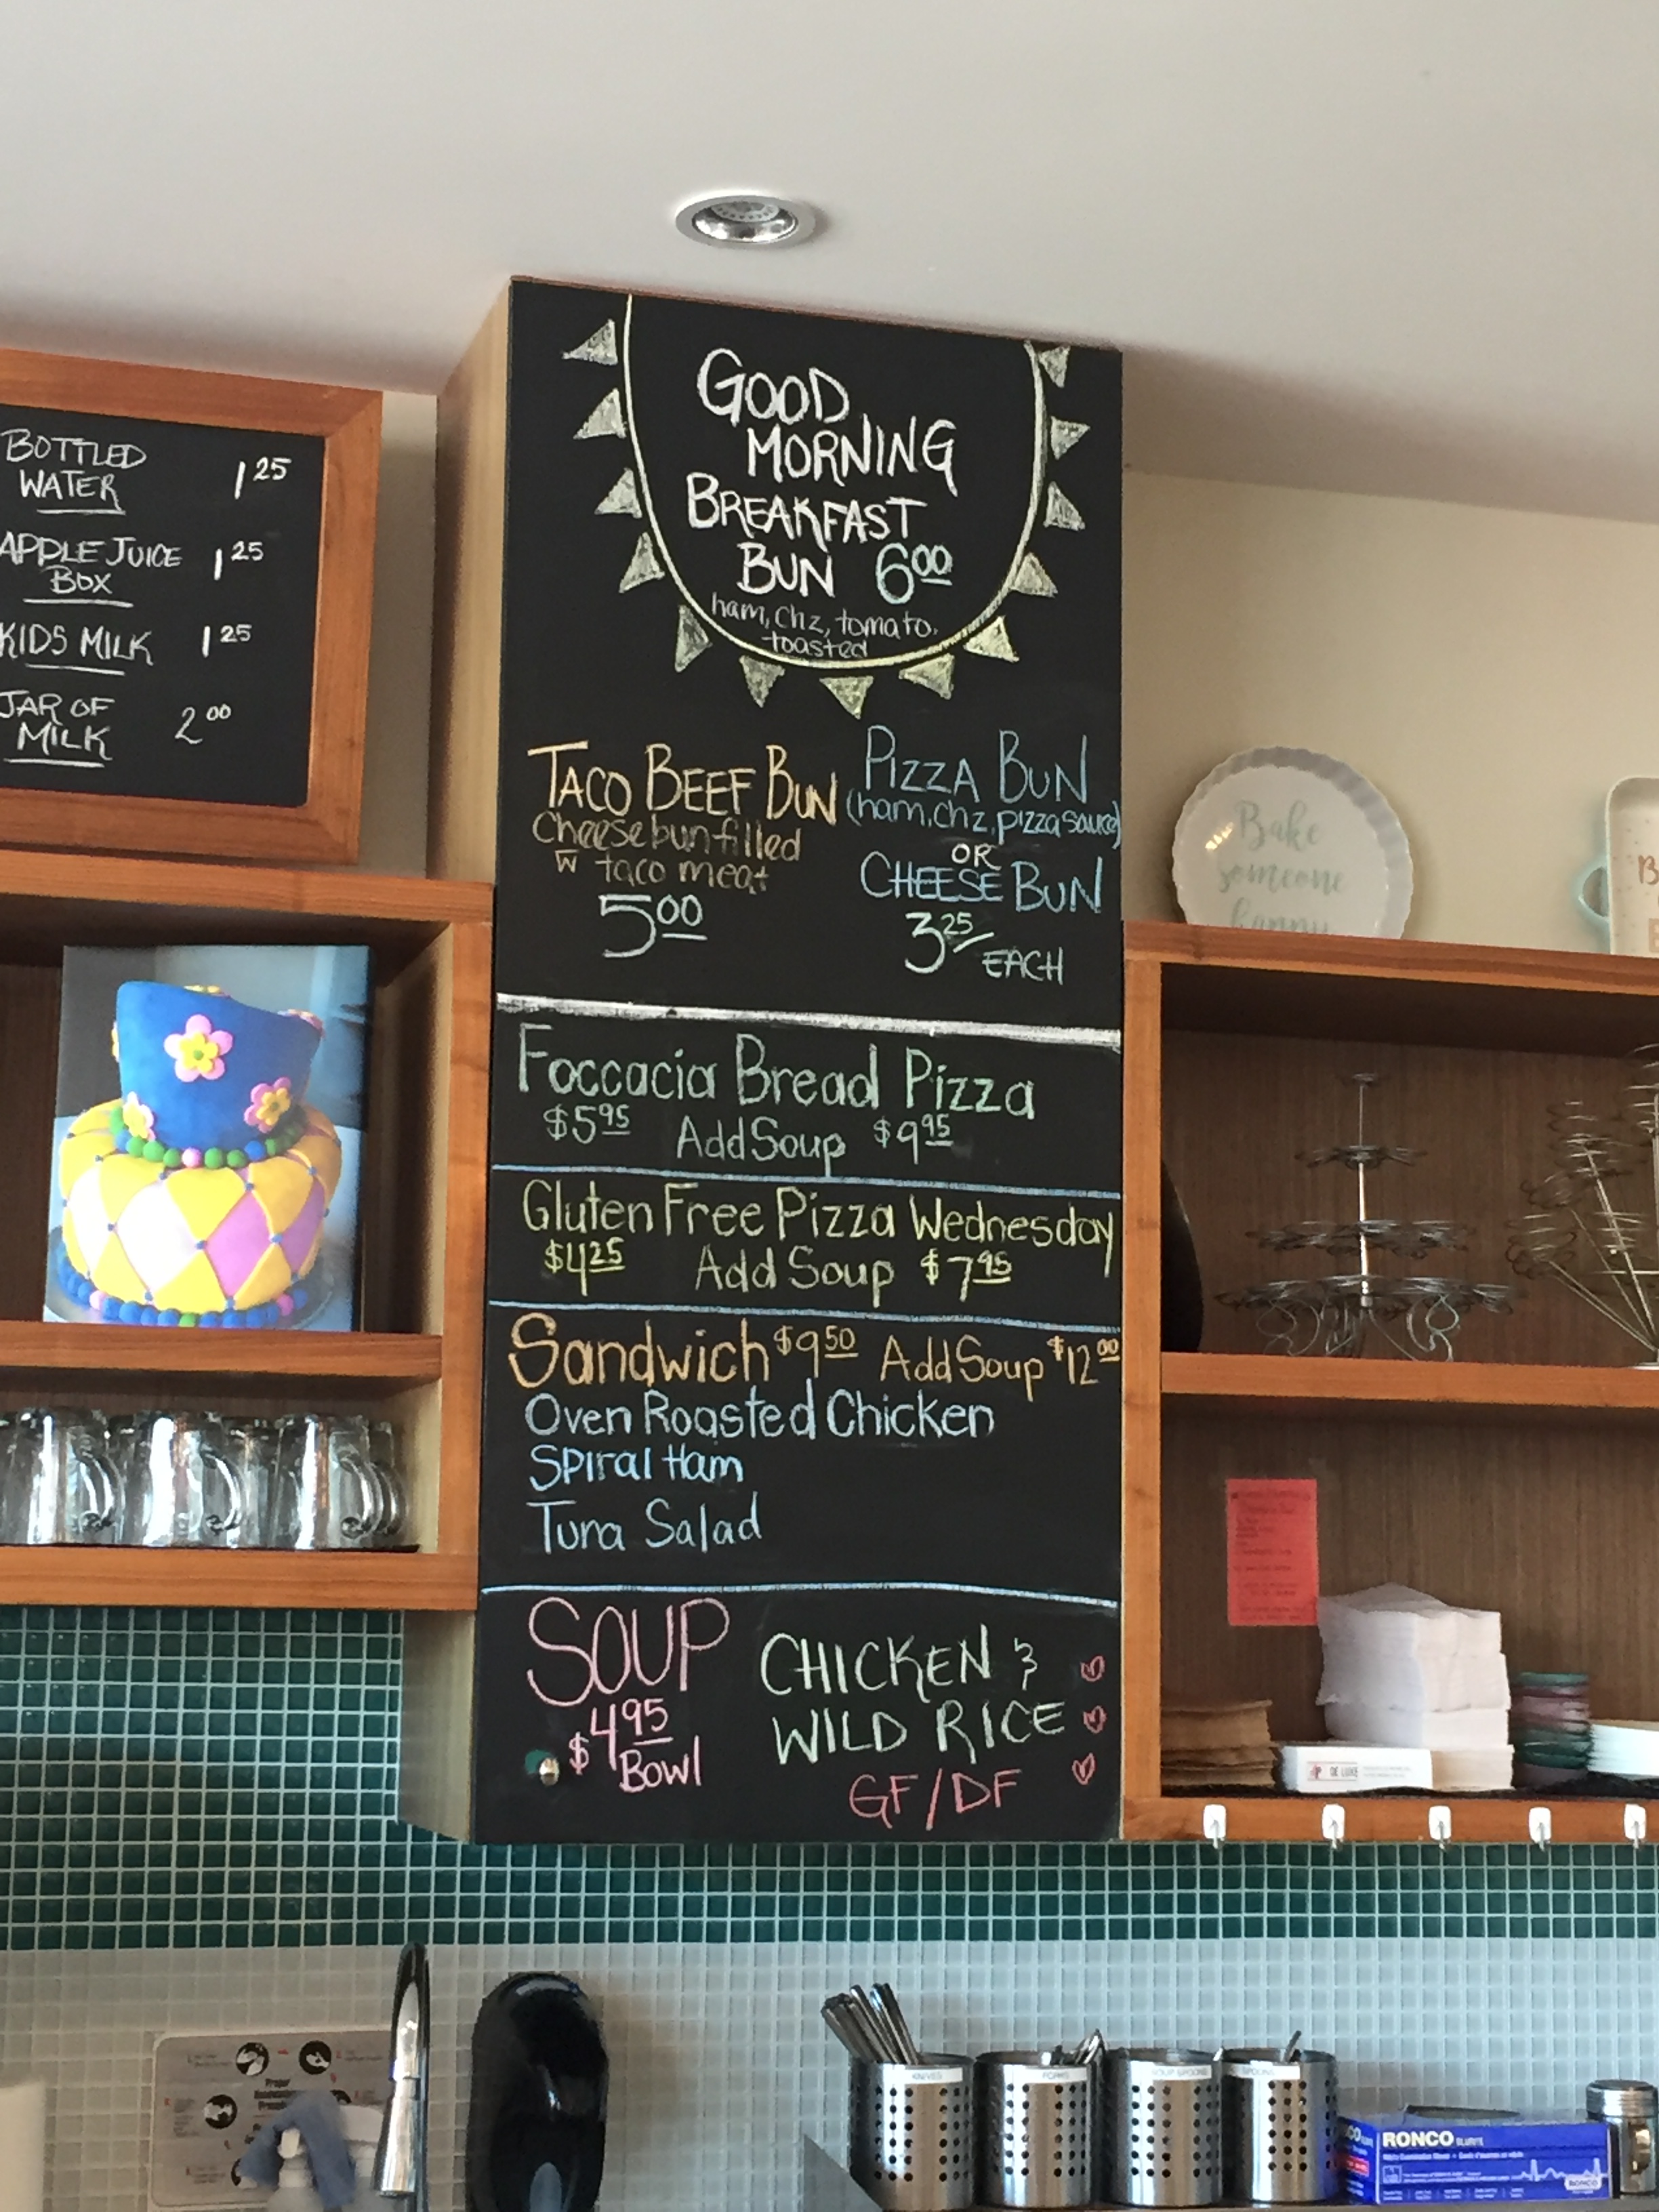 BOTTLED
WATER 1 25
APPLE JUICE
BOX 1 25
KIDS MILK 1 25
JAR OF
MILK 2 00
GOOD
MORNING
BREAKFAST
BUN 6 00
ham, chz, tomato,
toasted
TACO BEEF BUN
Cheese bun filled
w taco meat
5 00
PIZZA BUN
(ham, chz, pizza sauce)
OR
CHEESE BUN
3 25/ EACH
Foccacia Bread Pizza
$5 95 Add Soup $9 95
Gluten Free Pizza Wednesday
$4 25 Add Soup $7 95
Sandwich $9 50 Add Soup $12 00
Oven Roasted Chicken
Spiral Ham
Tuna Salad
SOUP
$4 95
Bowl
CHICKEN &
WILD RICE
GF/DF
Bake
someone
happy
B
DE LUXE
Proper
KNIVES
FORKS
SOUP SPOONS
SPOONS
RONCO
RONCO